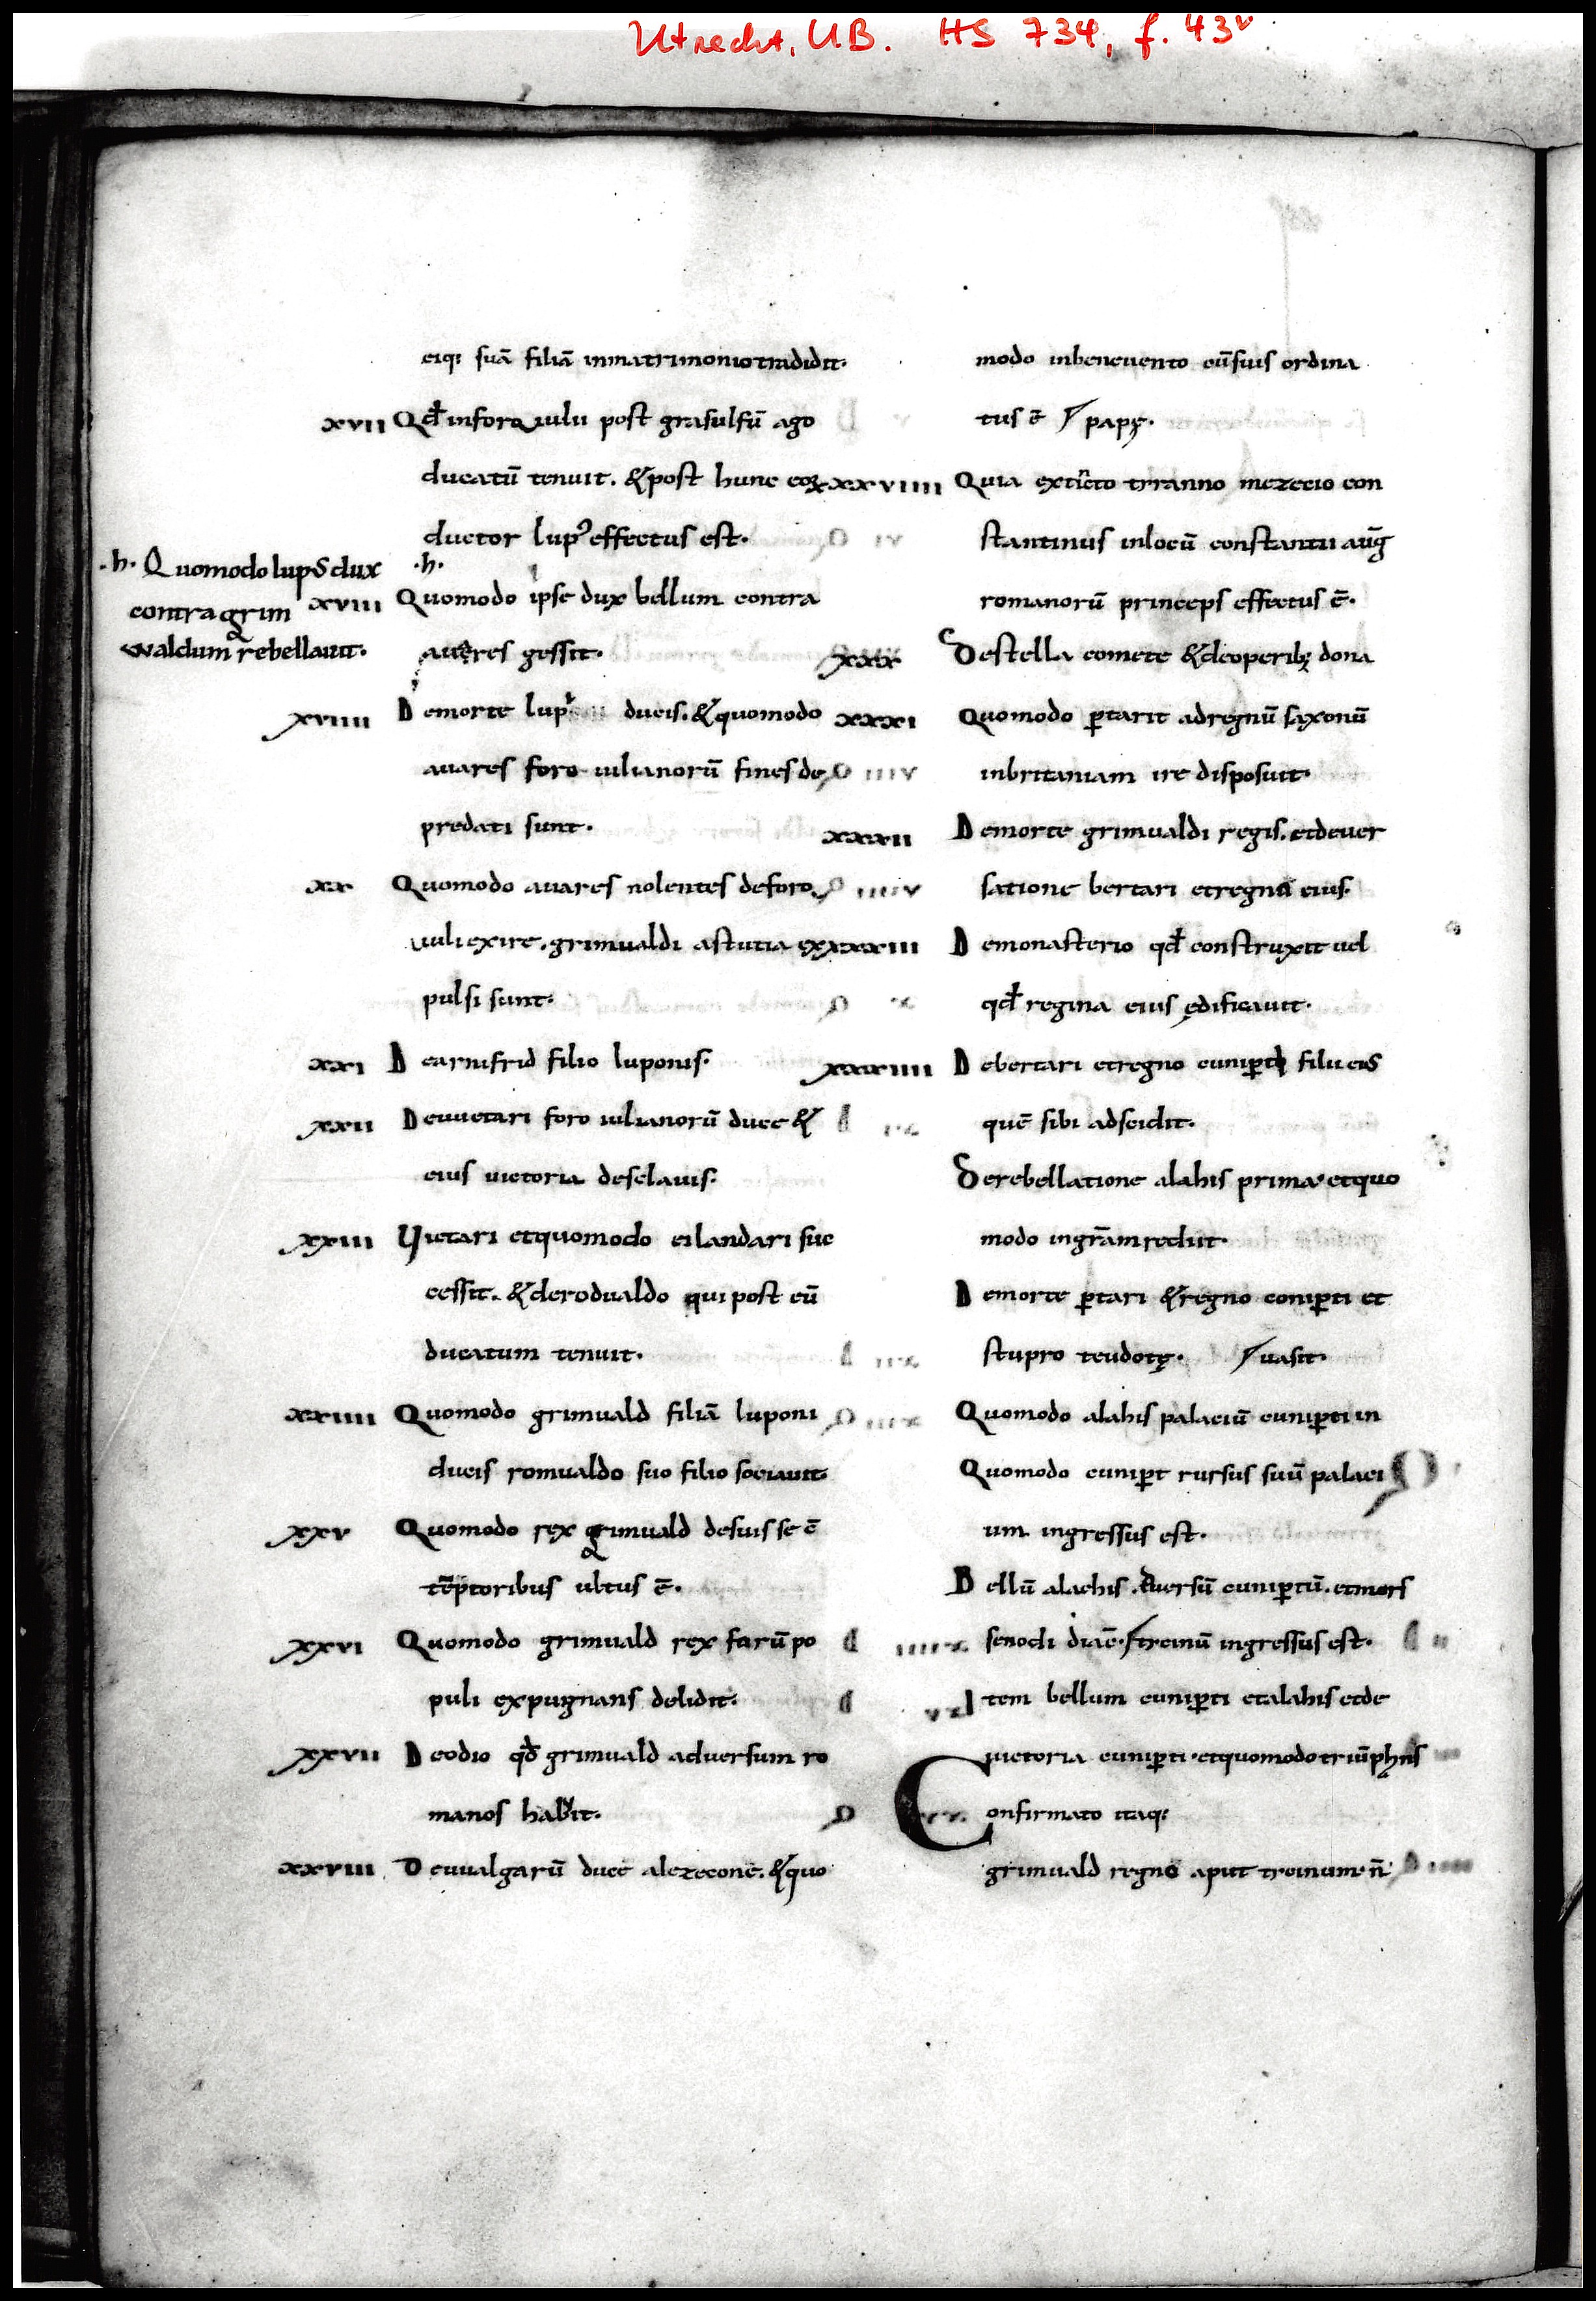 Utrecht, UB. HS 734, f. 43v
eiq; suā filiā inmatrimonio tradidit·
xvii Qd̄ inforo iulii post grasulfū ago
ducatū tenuit. & post hunc eoꝝ
ductor lup᾿ effectus est·
·h·
·h· Quomodo lupus dux
contra grim
waldum rebellauit·
xviii Quomodo ipse dux bellum contra
auares gessit·
xviiii Demorte lupi ducis. & quomodo
auares foro iulianorū fines de
predati sunt·
xx Quomodo auares nolentes deforo
iuli exire. grimualdi astutia ex
pulsi sunt·
xxi De arnifrid filio luponis·
xxii De uuetari foro iulianorū duce &
eius uictoria desclauis·
xxiii Uuetari etquomodo ei landari suc
cessit. & derodualdo qui post eū
ducatum tenuit·
xxiiii Quomodo grimuald filiā luponi
ducis romualdo suo filio sociauit·
xxv Quomodo rex grimuald desuis se cō
tēptoribus ultus ē·
xxvi Quomodo grimuald rex farū po
puli expugnans delidit·
xxvii De odio qd̄ grimuald aduersum ro
manos habuit·
xxviii De uualgarū duce alezecone. & quo
modo inbeneuento cū suis ordina
tus ē / papę·
xxviiii Quia extincto tyranno mezecio con
stantinus inlocū constantii auḡ
romanorū princeps effectus ē·
xxx De stella comete & deoperibꝫ dona
xxxi Quomodo ꝑtarit adregnū saxonū
inbritaniam ire disposuit·
xxxii Demorte grimualdi regis. etdeuer
satione bertari etregno eius·
xxxiii De monasterio qd̄ construxit uel
qd̄ regina eius ędificauit·
xxxiiii De bertari etregno cuniꝑti filii eius
quē sibi adscidit·
De rebellatione alahis prima· etquo
modo ingr̄am rediit·
Demorte ꝑtari & regno coniꝑti et
stupro teudotę· / uasit·
Quomodo alahis palaciū cuniꝑti in
Quomodo cuniꝑt rursus suū palaci
um ingressus est·
Bellū alachis aduersū cuniꝑtū. etmors
senodi diāc· / treinū ingressus est·
Item bellum cuniꝑti etalahis etde
uictoria cuniꝑti· etquomodo triūphans
Confirmato itaq;
grimuald regno aput treinum· n̄